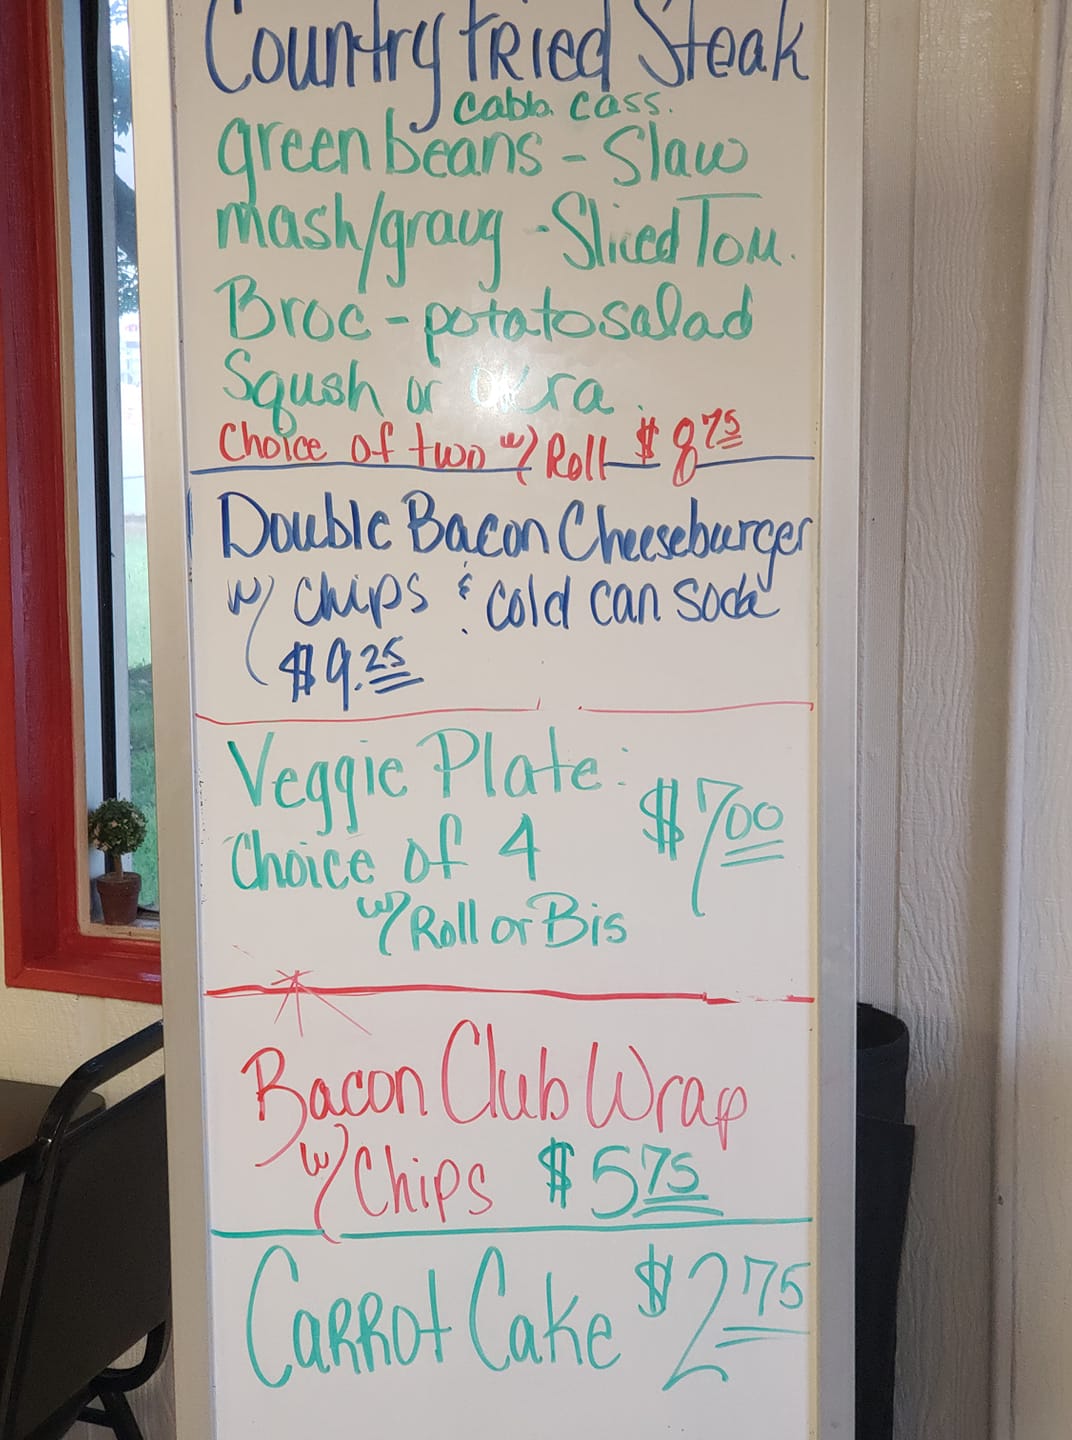 Country Fried Steak
cabb. cass.
green beans - Slaw
mash/gravy - Sliced Tom.
Broc - potato salad
Sqush or Okra
Choice of two w/ Roll $8.75
Double Bacon Cheeseburger
w/ Chips & cold can soda
$9.25
Veggie Plate: $7.00
Choice of 4
w/ Roll or Bis
Bacon Club Wrap
w/ Chips $5.75
Carrot Cake $2.75